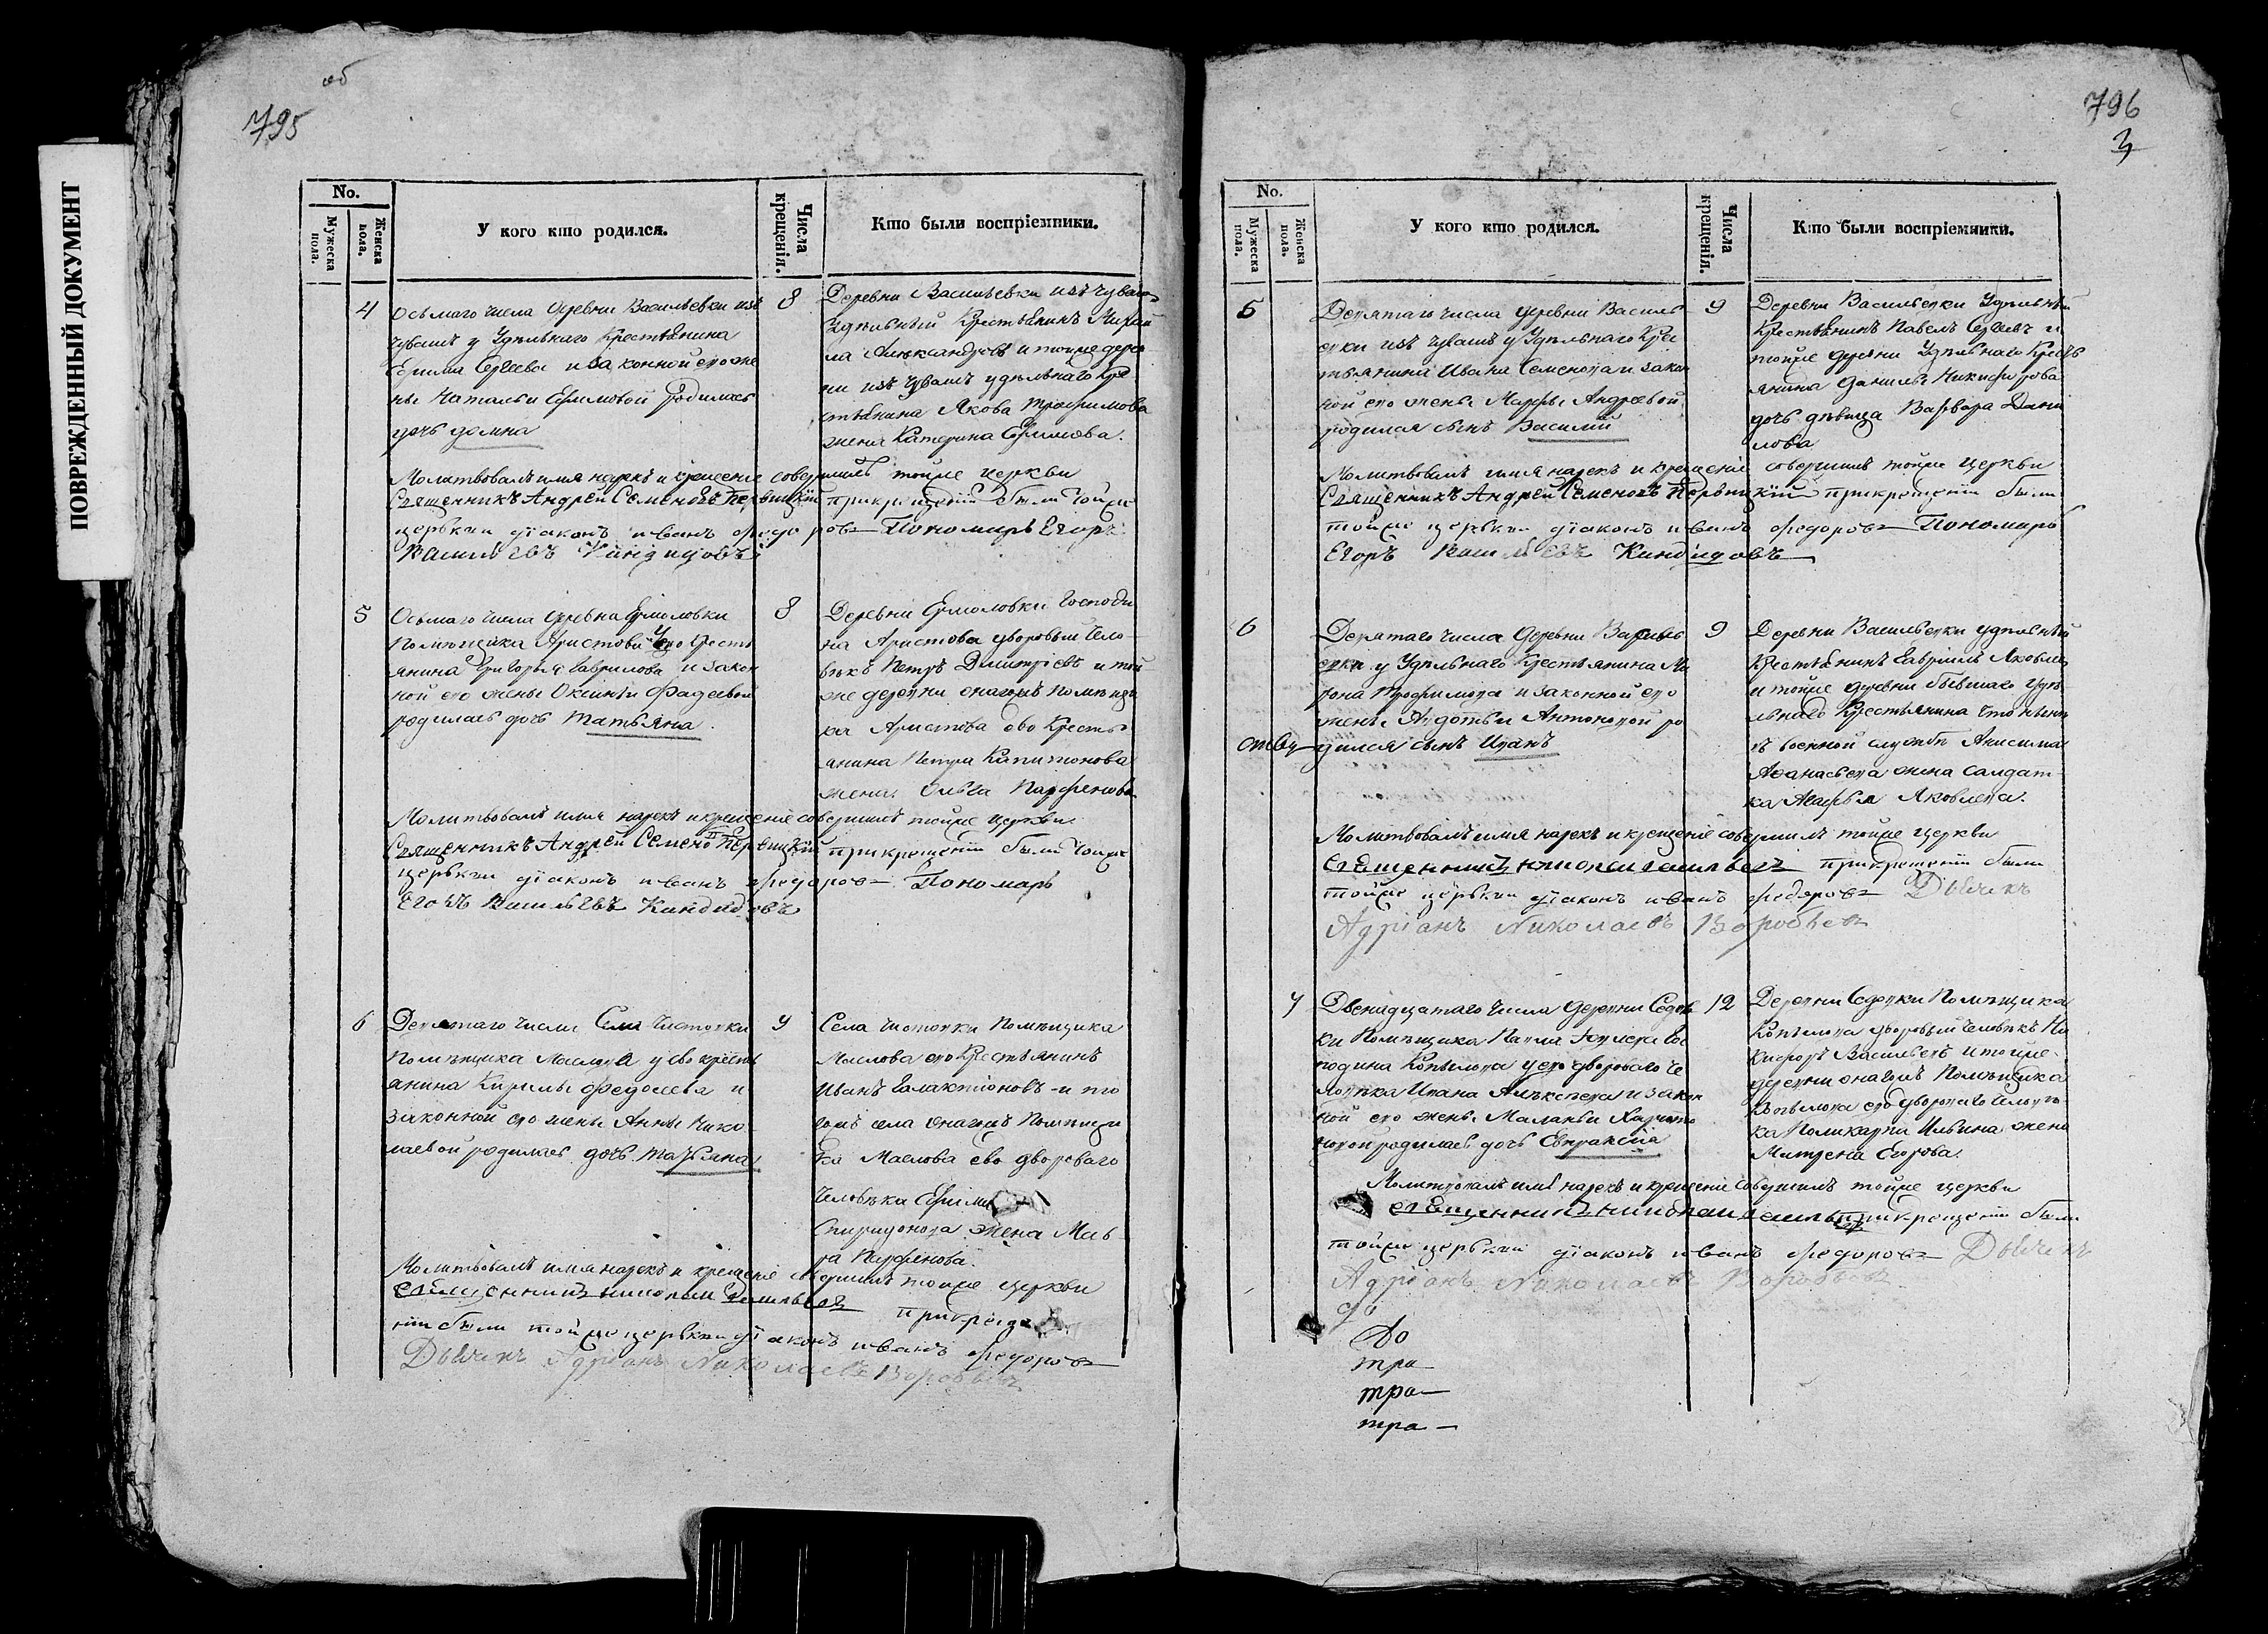 ПОВРЕЖДЕННЫЙ ДОКУМЕНТ
об
795
No.
Мужеска пола.
Женска пола.
У кого кто родился.
Числа крещенія.
Кто были воспріемники.
4
Осьмаго числа деревни Васильевки изъ
чувашъ у Удѣльнаго Крестьянина
Ефима Сергеева и законной его же
ны Натальи Ефимовой родилась
дочь Домна
8
Деревни Васильевки изъ чувашъ
Удѣльный Крестьянинъ Михай
ла Александровъ и тойже дерев
ни изъ чувашъ удѣльнаго Кре
стьянина Якова Трофимова
жена Катерина Ефимова.
Молитвовалъ имя нарекъ и крещеніе совершилъ тойже церкви
Священникъ Андрей Семеновъ прикрещеніи были тойже
церькви діаконъ иванъ федоровъ Пономарь Егоръ
Васильевъ Киндидовъ
5
Осьмаго числа деревни Ермоловки
Помѣщика Аристова Его Крестъ
янина Григорья Гаврилова и закон
ной его жены Оксиньи Фадеевой
родилась дочь Татьяна.
8
Деревни Ермоловки Господи
на Аристова дворовый Чело
вѣкъ Петръ Димитріевъ и той
же деревни онагожъ Помѣщи
ка Аристова ево Кресть
янина Петра Капитонова
жена Ольга Парфенова
Молитвовалъ имя нарекъ и крещеніе совершилъ тойже церкви
Священникъ Андрей Семено прикрещеніи были тойже
церькви діаконъ иванъ федоровъ Пономарь
Егоръ Васильевъ Киндидовъ
6
Девятаго числа Села Чистовки
Помѣщика Маслова у ево кресть
янина Кирилы Федосеева и
законной его жены Анны Нико
лаевой родилась дочь Татьяна
9
Села Чистовки Помѣщика
Маслова его Крестьянинъ
Иванъ Галактіоновъ и то
гожъ села онагожъ Помѣщи
ка Маслова ево двороваго
Человѣка Ефима
Спиридонова жена Мав
ра Парфенова.
Молитвовалъ имя нарекъ и крещеніе совершилъ тойже церкви
священникъ николай васильевъ прикреще
ніи были тойже церькви діаконъ иванъ федоровъ
Дьячекъ Адріанъ Николаевъ Воробьевъ
796
3
No.
Мужеска пола.
Женска пола.
У кого кто родился.
Числа крещенія.
Кто были воспріемники.
5
Девятаго числа деревни Василь
евки изъ чувашъ у Удѣльнаго Кре
стьянина Ивана Семенова и закон
ной его жены Марфы Андреевой
родился сынъ Василий
9
Деревни Васильевки Удѣльный
Крестьянинъ Павелъ Сергеевъ и
тойже деревни Удѣльнаго Кресть
янина Данилы Никифорова
дочь дѣвица Варвара Дани
лова
Молитвовалъ имя нарекъ и крещеніе совершилъ тойже церкви
Священникъ Андрей Семеновъ прикрещеніи были
тойже церькви діаконъ иванъ федоровъ Пономарь
Егоръ Васильевъ Киндидовъ
6
Девятаго числа деревни Василь
евки у Удѣльнаго Крестьянина Ми
рона Трофимова и законной его
жены Авдотьи Антоновой ро
дился сынъ Иванъ
9
Деревни Васильевки удѣльный
Крестьянинъ Гавріилъ Яковлевъ
и тойже деревни бывшаго Удѣ
льнаго Крестьянина что нынѣ
въ военной службѣ Анисима
Афанасьева жена салдат
ка Агафья Яковлева.
Молитвовалъ имя нарекъ и крещеніе совершилъ тойже церкви
священникъ николай васильевъ прикрещеніи были
тойже церькви діаконъ иванъ федоровъ Дьячекъ
Адріанъ Николаевъ Воробьевъ
7
Двенадцатаго числа деревни Седов
ки Помѣщика Павла Го
подина Копылова у его двороваго Че
ловѣка Ивана Алексеева и закон
ной его жены Маланьи Харито
новой родилась дочь Евпраксіа
12
Деревни Седовки Помѣщика
Копылова дворовый человѣкъ Ни
кифоръ Васильевъ и тойже
деревни онагожъ Помѣщика
Копылова его двороваго человѣ
ка Поликарпа Ильина жена
Матрена Егорова.
Молитвовалъ имя нарекъ и крещеніе совершилъ тойже церкви
священникъ николай васильевъ прикрещеніи были
тойже церькви діаконъ иванъ федоровъ Дьячекъ
Адріанъ Николаевъ Воробьевъ
до
До
тра
тра
тра